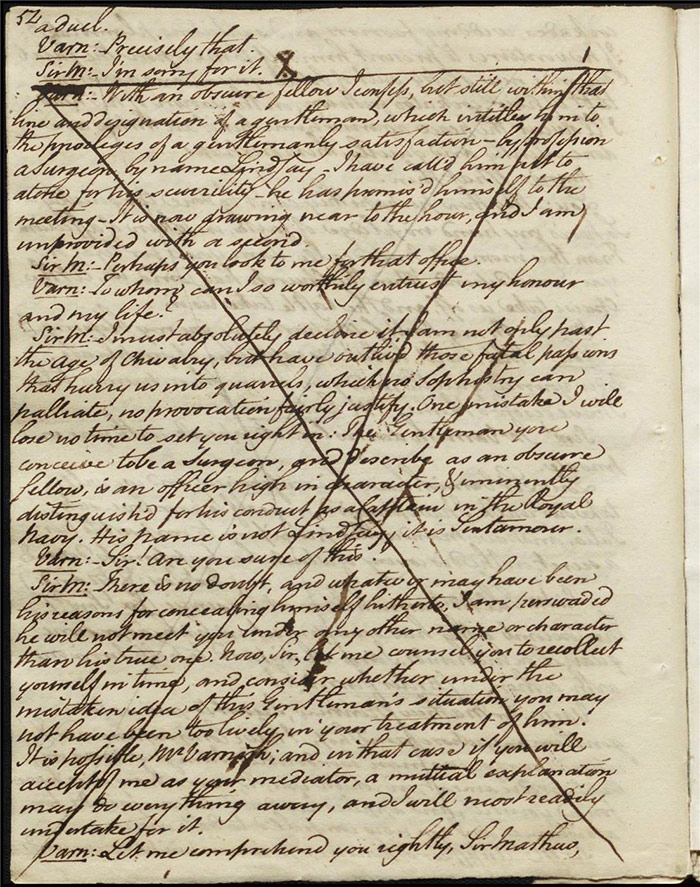 54
a duel.
Varn: – Precisely that.
Sir M: – I'm sorry for it. X
Varn: – With an obscure fellow I confess, but still within that
line and designation of a gentleman, which intitles him to
the privileges of a gentlemanly satisfaction – by profession
a Surgeon, by name Lindsay – I have call'd him out to
atone for his scurrility – he has promis'd himself to the
meeting – It is now drawing near to the hour, and I am
unprovided with a second
Sir M: – Perhaps you look to me for that office.
Varn: To whom can I so worthily entrust my honour
and my life?
Sir M: – I must absolutely decline it. I am not only past
the age of Chivalry, but have outliv'd those fatal passions
that hurry us into quarrels, which no Sophistry can
palliate, no provocation fairly justify. One mistake I will
lose no time to set you right in: The Gentleman you
conceive to be a Surgeon, and describe as an obscure
fellow, is an officer high in character, & eminently
distinguish'd for his conduct as a Captain in the Royal
Navy. His name is not Lindsay, it is Sentamour.
Varn: – Sir! Are you sure of this?
Sir M: There is no doubt, and whatever may have been
his reasons for concealing himself hitherto, I am perswaded
he will not meet you under any other name or character
than his true one. Now, Sir, let me counsel you to recollect
yourself in time, and consider whether under the
mistaken idea of this Gentleman's situation you may
not have been too lively in your treatment of him.
It is possible, Mr Varnish; and in that case if you will
accept of me as your mediator, a mutual explanation
may do everything away, and I will most readily
undertake for it.
Varn: Let me comprehend you rightly, Sir Mathew,